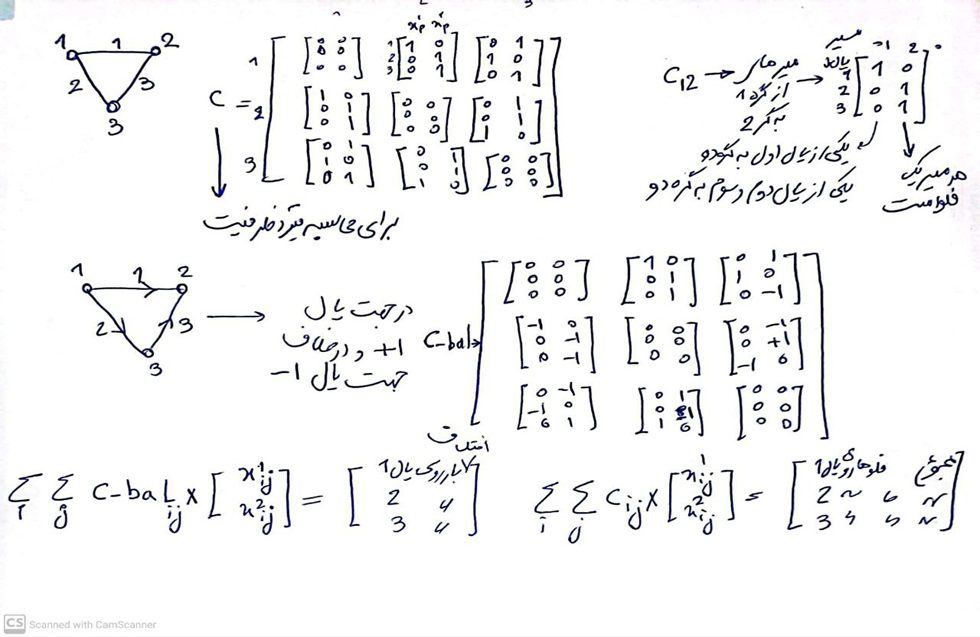 1 1 2
2 3
3
C = 
1 [ [0 0; 0 0; 0 0] 1 2 3 [1 0; 0 1; 0 1] [0 1; 1 0; 0 1] ]
2 [ [1 0; 0 1; 0 1] [0 0; 0 0; 0 0] [0 1; 0 1; 1 0] ]
3 [ [0 1; 1 0; 0 1] [0 1; 0 1; 1 0] [0 0; 0 0; 0 0] ]
برای محاسبه قید ظرفیت
C12 → مسیر های از گره 1 به گره 2 →
مسیر 1 2
یال 1 2 3 [1 0; 0 1; 0 1]
یکی از یال اول به گره دو
یکی از یال دوم و سوم به گره دو
هر مسیر یک فلو است
1 1 2
2 3
3
→ در جهت یال
+1 و در خلاف
جهت یال -1
C-bal =
[ [0 0; 0 0; 0 0] [1 0; 0 1; 0 1] [0 1; 1 0; 0 -1] ]
[ [-1 0; 0 -1; 0 -1] [0 0; 0 0; 0 0] [0 -1; 0 +1; -1 0] ]
[ [0 -1; -1 0; 0 1] [0 1; 0 -1; 1 0] [0 0; 0 0; 0 0] ]
اختلاف
Σi Σj C-bal ij × [x¹ij; x²ij] = [بار روی یال 1; 2 〃; 3 〃]
Σi Σj Cij × [x¹ij; x²ij] = [مجموع فلوها روی یال 1; 2 〃 〃 〃; 3 〃 〃 〃]
CS Scanned with CamScanner